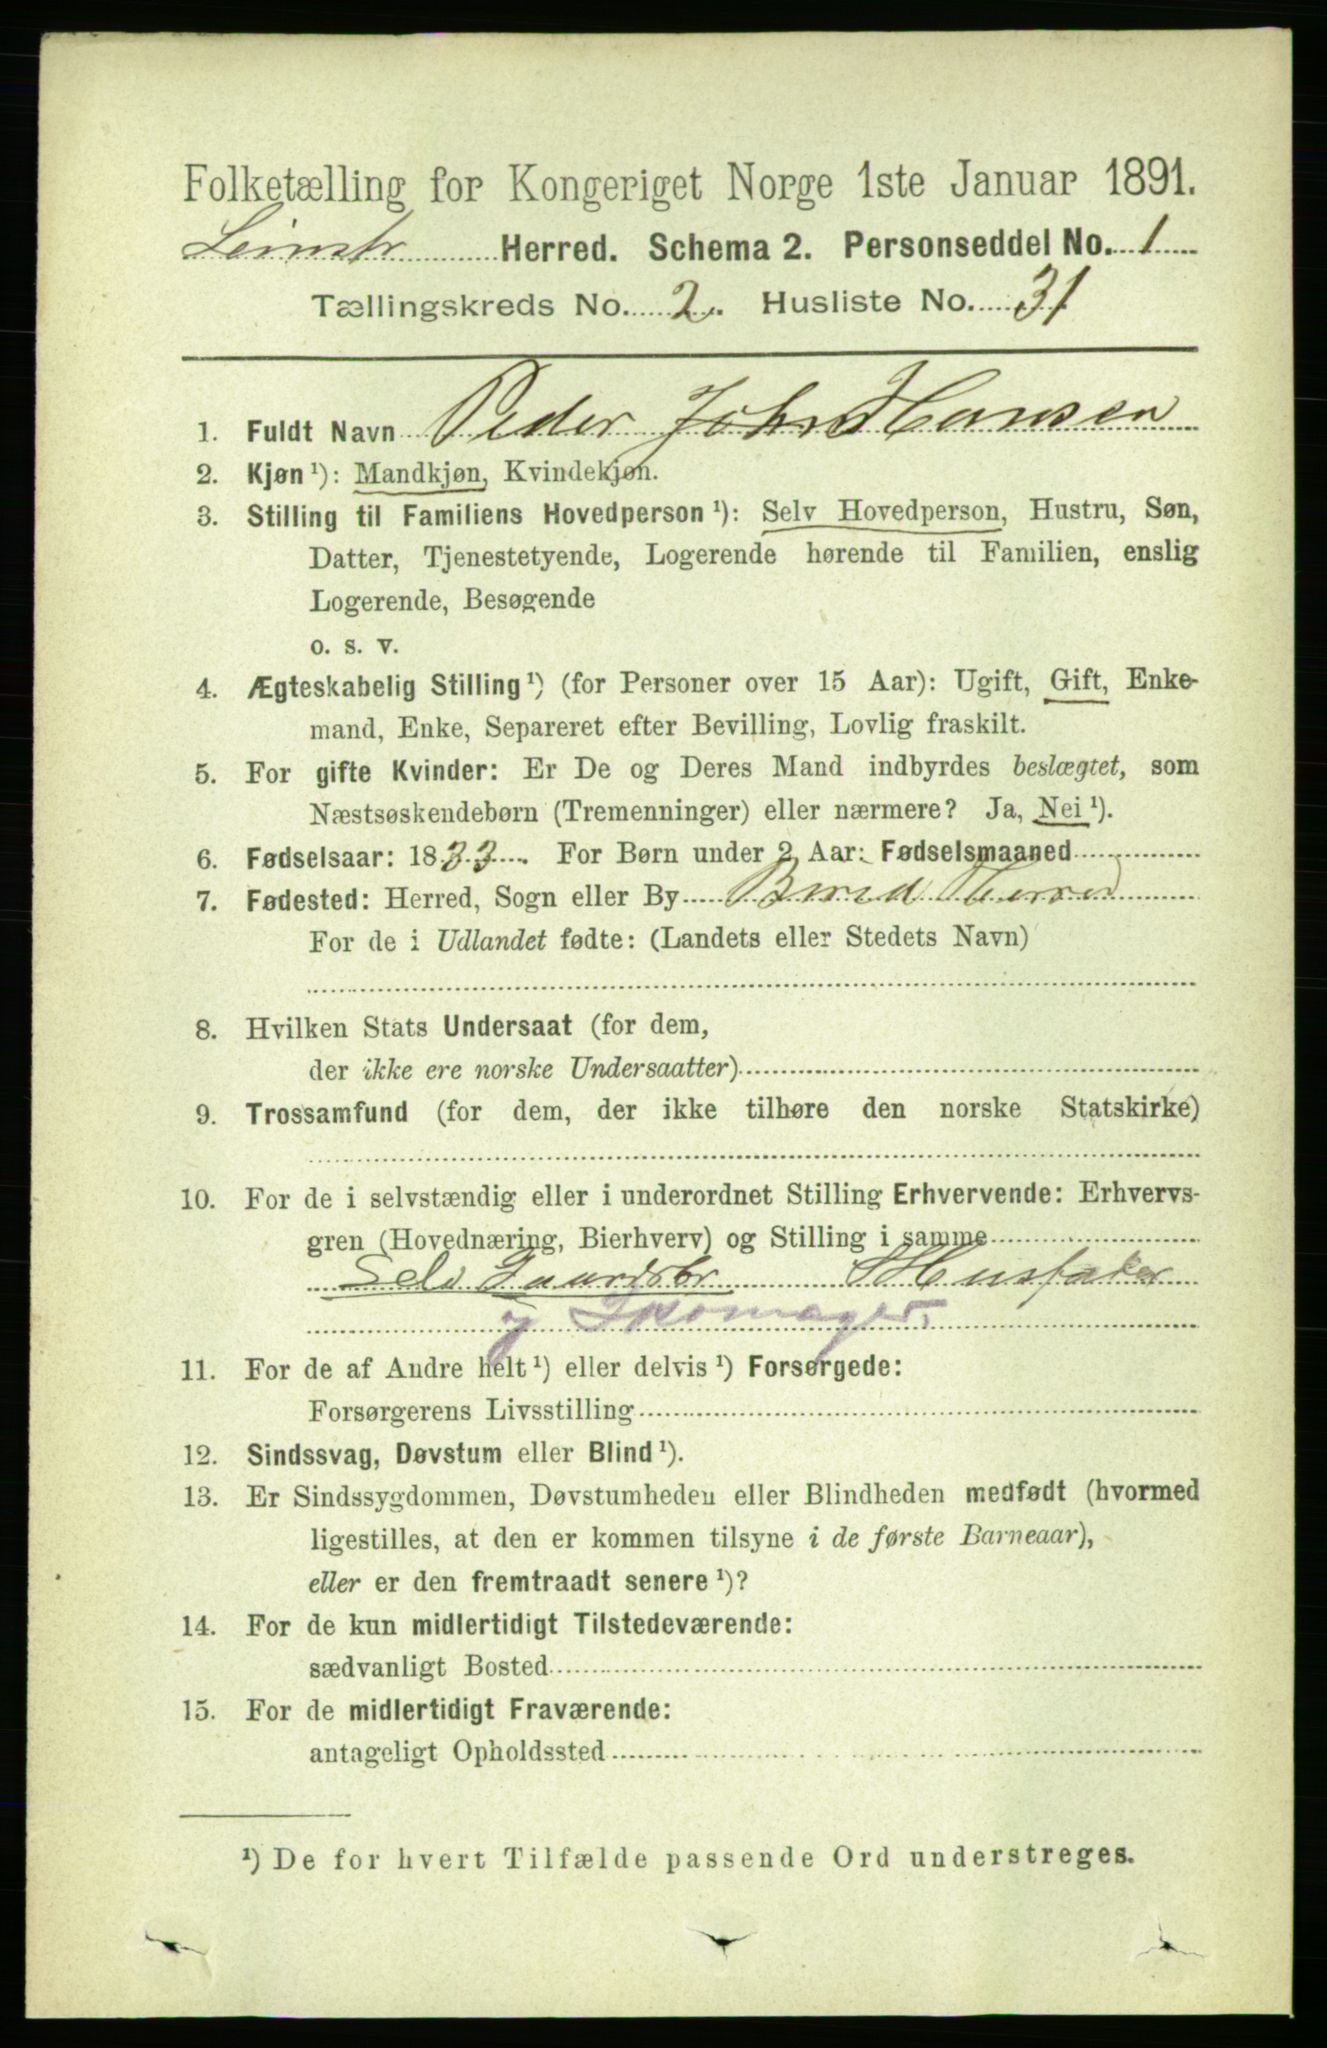 Folketælling for Kongeriget Norge 1ste Januar 1891.
Leinstr Herred. Schema 2. Personseddel No. 1
Tællingskreds No. 2. Husliste No. 31
1. Fuldt Navn Peder John Hansen
2. Kjøn ¹): Mandkjøn, Kvindekjøn.
3. Stilling til Familiens Hovedperson ¹): Selv Hovedperson, Hustru, Søn,
Datter, Tjenestetyende, Logerende hørende til Familien, enslig
Logerende, Besøgende
o. s. v.
4. Ægteskabelig Stilling ¹) (for Personer over 15 Aar): Ugift, Gift, Enke-
mand, Enke, Separeret efter Bevilling, Lovlig fraskilt.
5. For gifte Kvinder: Er De og Deres Mand indbyrdes beslægtet, som
Næstsøskendebørn (Tremenninger) eller nærmere? Ja, Nei ¹).
6. Fødselsaar: 1833. For Børn under 2 Aar: Fødselsmaaned
7. Fødested: Herred, Sogn eller By Herred
For de i Udlandet fødte: (Landets eller Stedets Navn)
8. Hvilken Stats Undersaat (for dem,
der ikke ere norske Undersaatter)
9. Trossamfund (for dem, der ikke tilhøre den norske Statskirke)
10. For de i selvstændig eller i underordnet Stilling Erhvervende: Erhvervs-
gren (Hovednæring, Bierhverv) og Stilling i samme
Selv Gaardsbr
og Skomager.
11. For de af Andre helt ¹) eller delvis ¹) Forsørgede:
Forsørgerens Livsstilling
12. Sindssvag, Døvstum eller Blind ¹).
13. Er Sindssygdommen, Døvstumheden eller Blindheden medfødt (hvormed
ligestilles, at den er kommen tilsyne i de første Barneaar),
eller er den fremtraadt senere ¹)?
14. For de kun midlertidigt Tilstedeværende:
sædvanligt Bosted
15. For de midlertidigt Fraværende:
antageligt Opholdssted
¹) De for hvert Tilfælde passende Ord understreges.